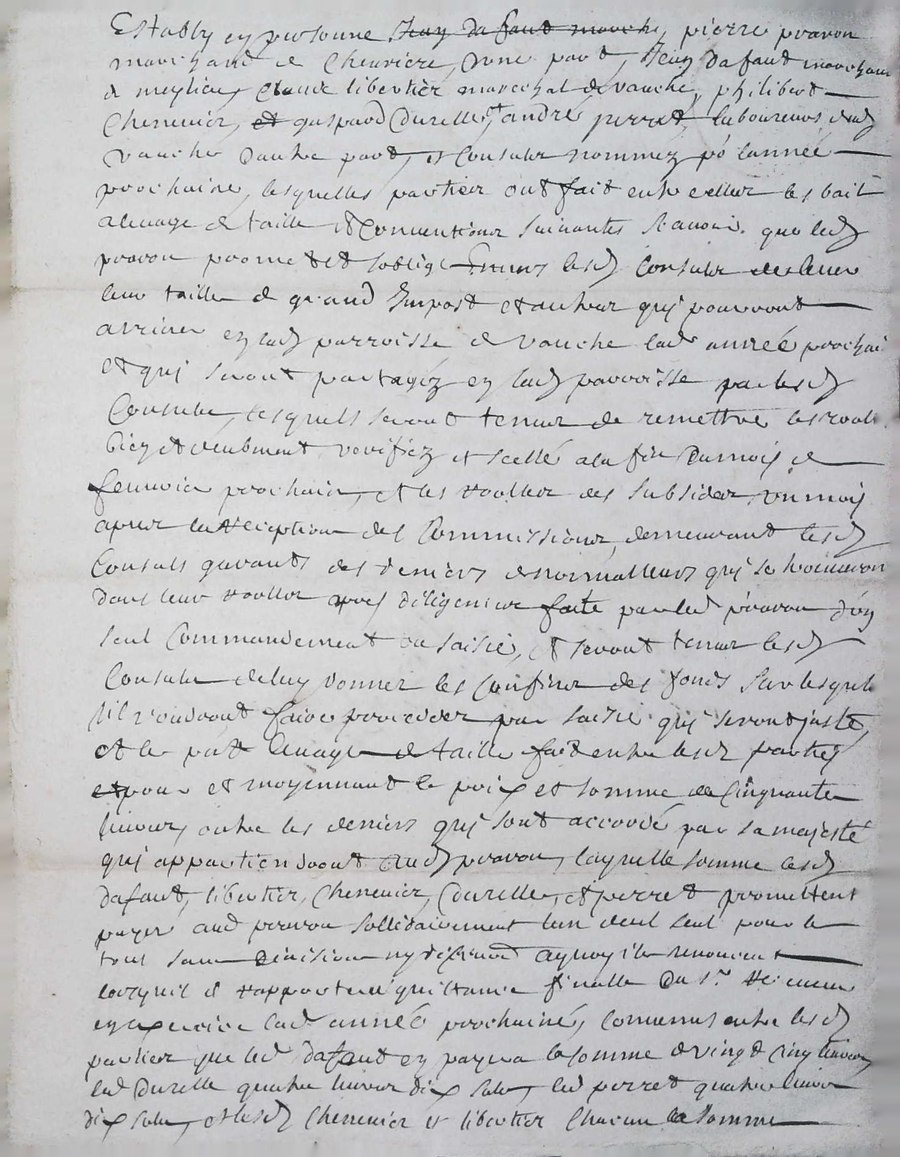 Estably en personne Jean dafaut marcha, pierre pravon
marchand de Cheuriere, d'une part, Jean dafaut marchand
de meylieu, Claude libertier marechal de vauche, philibert
Chenevier, et gaspard Durelle, et andré perret, laboureurs dud
vauche d'autre part, et Consulz nommez po l'année
prochaine, lesquelles parties ont fait entre elles les bail
aleuage de taille et Conventions suivantes scavoir que led
pravon promet et s'oblige envers lesd Consulz de leuer
leur taille de grand Impost et autres qui pourront
arriuer en lad parroisse de vauche lad année prochai
et qui seront partagéz en lad parroisse par lesd
Consulz, lesquels seront tenus de remettre les rools
bien et deubment verifiéz et scellé a la fin du mois de
feurier prochain, et les roolles des subsides, un mois
apres la Reception des Commissions, demeurant lesd
Consuls garants des deniers et normalleurs qui se trouueron
dans leur roolles apres diligences faite par led pravon d'un
seul Commandement ou saisie, et seront tenus lesd
Consulz de luy donner les Confins des fonds sur lesquels
s'il voudront faire proceder par saisie qui seront juste,
et le pnt leuage de taille fait entre lesd parties
et pour et moyennant le prix et somme de Cinquante
liures, outre les deniers qui sont accordé par sa majesté
qui appartiendront aud pravon, laquelle somme lesd
dafaut, libertier, Chenevier, Durelle, et perret promettent
payer aud pravon sollidairement l'un d'eul seul pour le
tout sans Division ny aquoy ils renoncent
lorsquil rapportera quittance finalle du Sr. Receueur
en exercice lad année prochaine, Convenus entre lesd
parties que led dafaut en payera la somme de vingt Cinq liures,
led Durelle quatre liures dix solz, led perret quatre liures
dix solz, et lesd Chenevier et libertier Chacun la somme